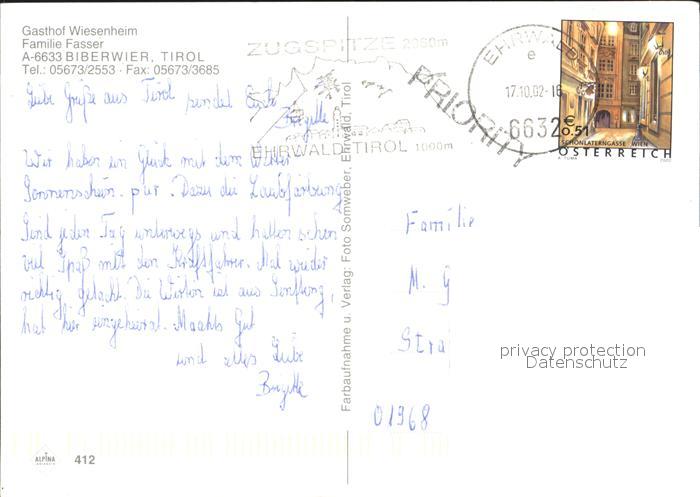 Gasthof Wiesenheim
Familie Fasser
A-6633 BIBERWIER, TIROL
Tel.: 05673/2553 · Fax: 05673/3685
Liebe Grüße aus Tirol sendet Euch
Brigitte
Wir haben ein Glück mit dem Wetter
Sonnenschein pur. Dazu die Laubfärbung
Sind jeden Tag unterwegs und hatten schon
viel Spaß mit den Kraftfahrer. Mal wieder
richtig gelacht. Die Wirtin ist aus
hat hier eingeheirat. Machts Gut
und alles Liebe
Brigitte
ALPINA
412
Farbaufnahme u. Verlag: Foto Somweber, Ehrwald, Tirol
ZUGSPITZE 2960m
EHRWALD TIROL 1000m
PRIORITY
EHRWALD
e
17.10.02-18
6632
€
0.51
SCHÖNLATERNGASSE WIEN
ÖSTERREICH
A. TUMA
Familie
M. G
Stra
01968
privacy protection
Datenschutz